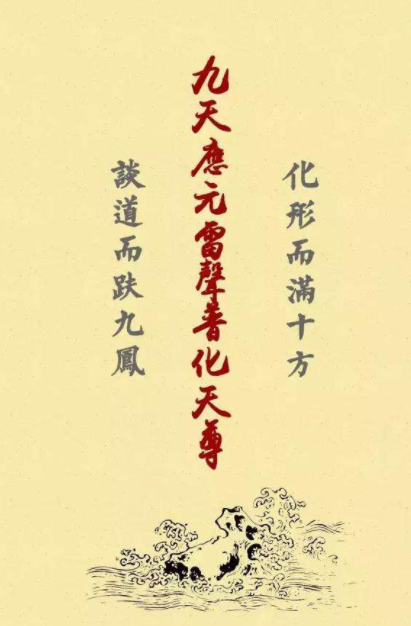 化形而滿十方
九天應元雷聲普化天尊
談道而趺九鳳